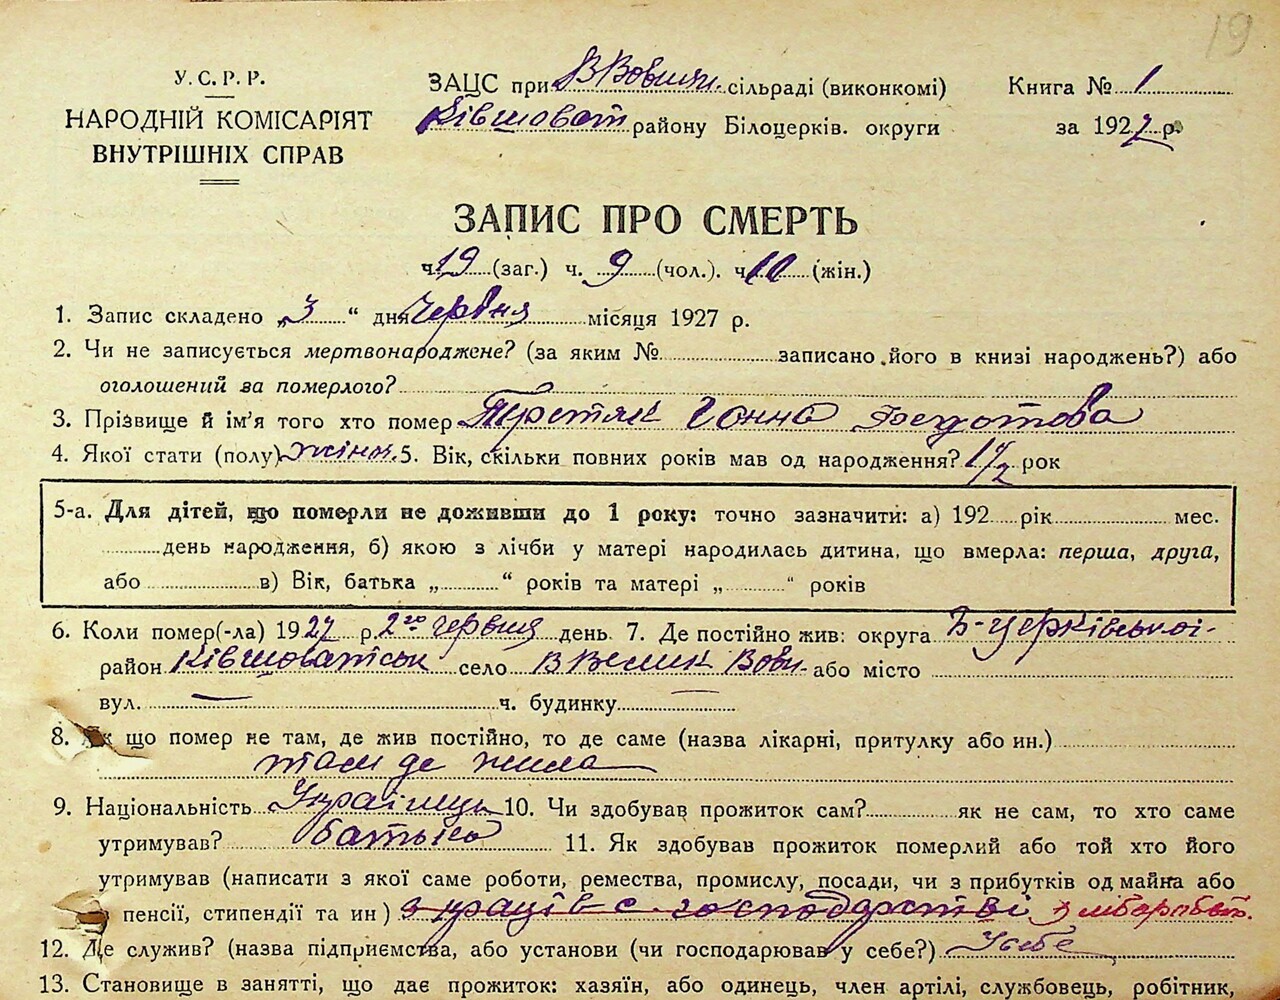 19
У.С.Р.Р.
НАРОДНІЙ КОМІСАРІЯТ
ВНУТРІШНІХ СПРАВ
ЗАЦС при В Вовнян. сільраді (виконкомі)
Ківшоват району Білоцерків. округи
Книга № 1
за 1927 р.
ЗАПИС ПРО СМЕРТЬ
ч. 19 (заг.) ч. 9 (чол.). ч. 10 (жін.)
1. Запис складено „3“ дня Червня місяця 1927 р.
2. Чи не записується мертвонароджене? (за яким № записано його в книзі народжень?) або
оголошений за померлого?
3. Прізвище й ім'я того хто помер Третяк Ганна Федотова
4. Якої стати (полу) жіноч. 5. Вік, скільки повних років мав од народження? 1 1/2 рок
5-а. Для дітей, що померли не доживши до 1 року: точно зазначити: а) 192 рік мес.
день народження, б) якою з лічби у матері народилась дитина, що вмерла: перша, друга,
або в) Вік, батька „ “ років та матері „ “ років
6. Коли помер(-ла) 1927 р. 2го червня день. 7. Де постійно жив: округа Б-Церківської
район Ківшоватськ село В Велик Вовн. або місто
вул. — ч. будинку —
8. Як що помер не там, де жив постійно, то де саме (назва лікарні, притулку або ин.)
там де жила
9. Національність Українць 10. Чи здобував прожиток сам? як не сам, то хто саме
утримував? батько 11. Як здобував прожиток померлий або той хто його
утримував (написати з якої саме роботи, ремества, промислу, посади, чи з прибутків од майна або
пенсії, стипендії та ин) з праці в с. господарстві
12. Де служив? (назва підприємства, або установи (чи господарював у себе?) У себе
13. Становище в занятті, що дає прожиток: хазяїн, або одинець, член артілі, службовець, робітник,